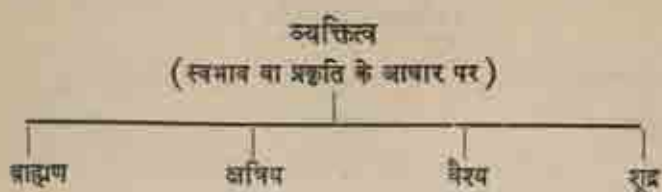 व्यक्तित्व
(स्वभाव वा प्रकृति के आधार पर)
ब्राह्मण क्षत्रिय वैश्य शूद्र